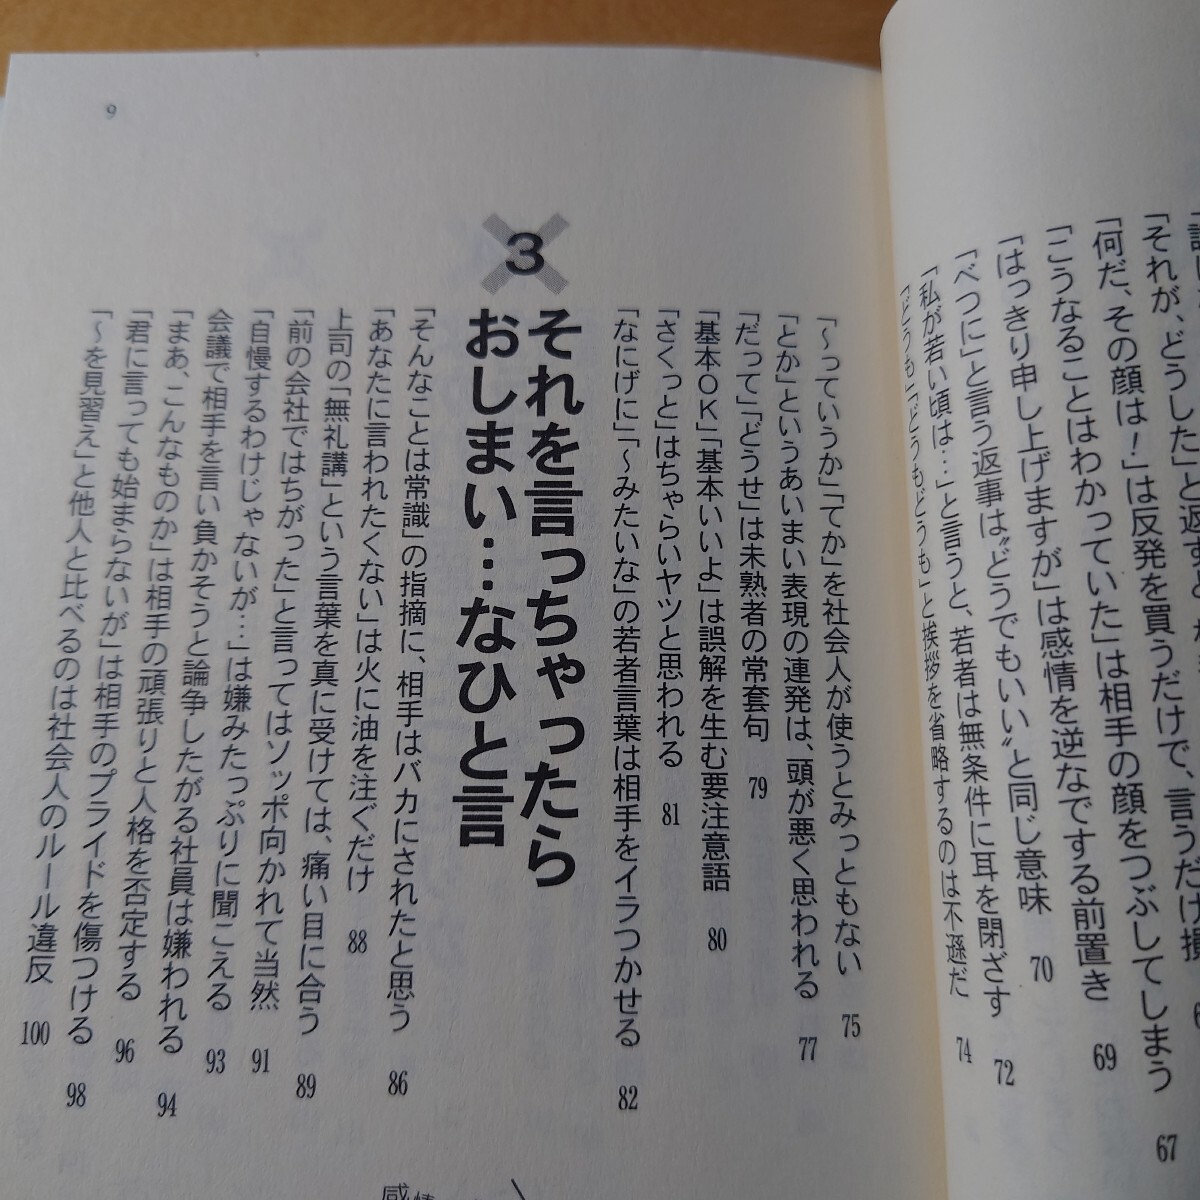 「それが、どうした」と返す
「何だ、その顔は!」は反発を買うだけで、言うだけ損
「こうなることはわかっていた」は相手の顔をつぶしてしまう 67
「はっきり申し上げますが」は感情を逆なでする前置き 69
「べつに」と言う返事は〝どうでもいい〟と同じ意味 70
「私が若い頃は…」と言うと、若者は無条件に耳を閉ざす 72
「どうも」「どうもどうも」と挨拶を省略するのは不遜だ 74
9
「～っていうか」「てか」を社会人が使うとみっともない 75
「とか」というあいまい表現の連発は、頭が悪く思われる 77
「だって」「どうせ」は未熟者の常套句 79
「基本OK」「基本いいよ」は誤解を生む要注意語 80
「さくっと」はちゃらいヤツと思われる 81
「なにげに」「～みたいな」の若者言葉は相手をイラつかせる 82
3
それを言っちゃったら
おしまい…なひと言
「そんなことは常識」の指摘に、相手はバカにされたと思う 86
「あなたに言われたくない」は火に油を注ぐだけ 88
上司の「無礼講」という言葉を真に受けては、痛い目に合う 89
「前の会社ではちがった」と言ってはソッポ向かれて当然 91
「自慢するわけじゃないが…」は嫌みたっぷりに聞こえる 93
会議で相手を言い負かそうと論争したがる社員は嫌われる 94
「まあ、こんなものか」は相手の頑張りと人格を否定する 96
「君に言っても始まらないが」は相手のプライドを傷つける 98
「～を見習え」と他人と比べるのは社会人のルール違反 100